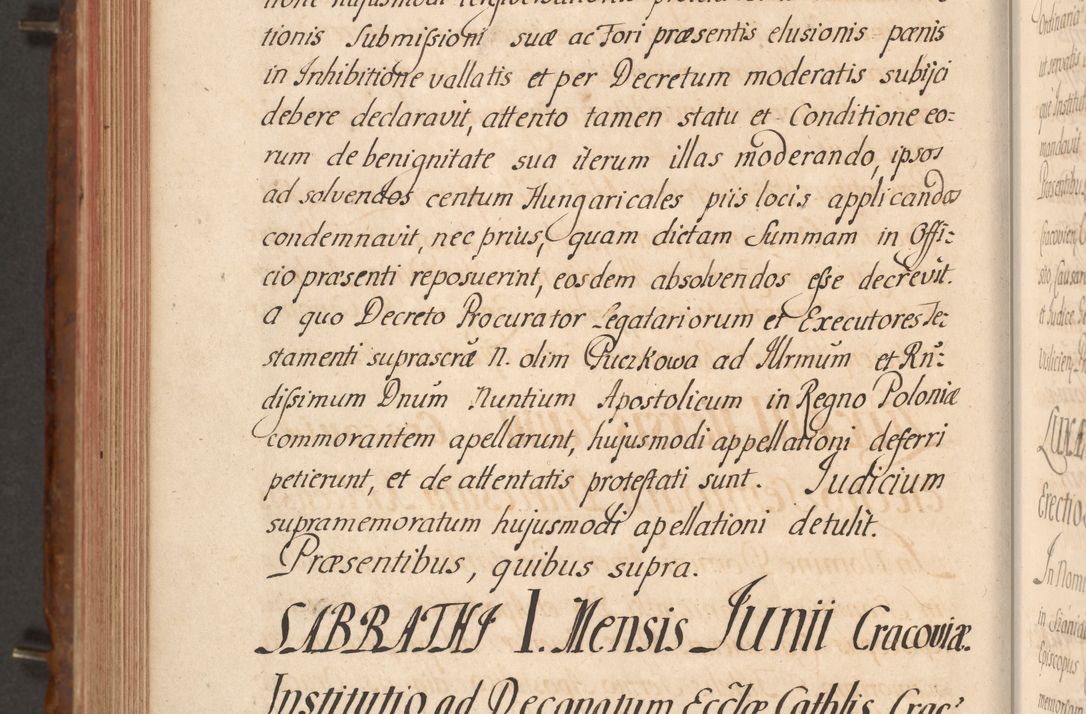 tionis Submissioni suæ ac Fori præsentis elusionis pœnis
in Inhibitione vallatis et per Decretum moderatis subijci
debere declaravit, attento tamen statu et Conditione eo=
rum de benignitate sua iterum illas moderando, ipsos
ad solvendos centum Hungaricales piis locis applicandos
condemnavit, nec prius, quam dictam Summam in Offi=
cio præsenti reposuerint, eosdem absolvendos esse decrevit.
A quo Decreto Procurator Legatariorum et Executores Te=
stamenti suprascræ N. olim Puczkowa ad Illrmum et Rn̄=
dissimum Dnūm Nuntium Apostolicum in Regno Poloniæ
commorantem apellarunt, hujusmodi appellationi deferri
petierunt, et de attentatis protestati sunt. Judicium
supramemoratum hujusmodi apellationi detulit.
Præsentibus, quibus supra.
SABBATHI 1. Mensis Junii Cracoviæ.
Institutio ad Decanatum Eccl̄æ Cathlis Crac:
Ordinaria
ut servatis
que Institu
mandavit
Præsentibus
Cracovien
et Judice
LUXE
Erectio
In Nom
Episcopus
memoriam